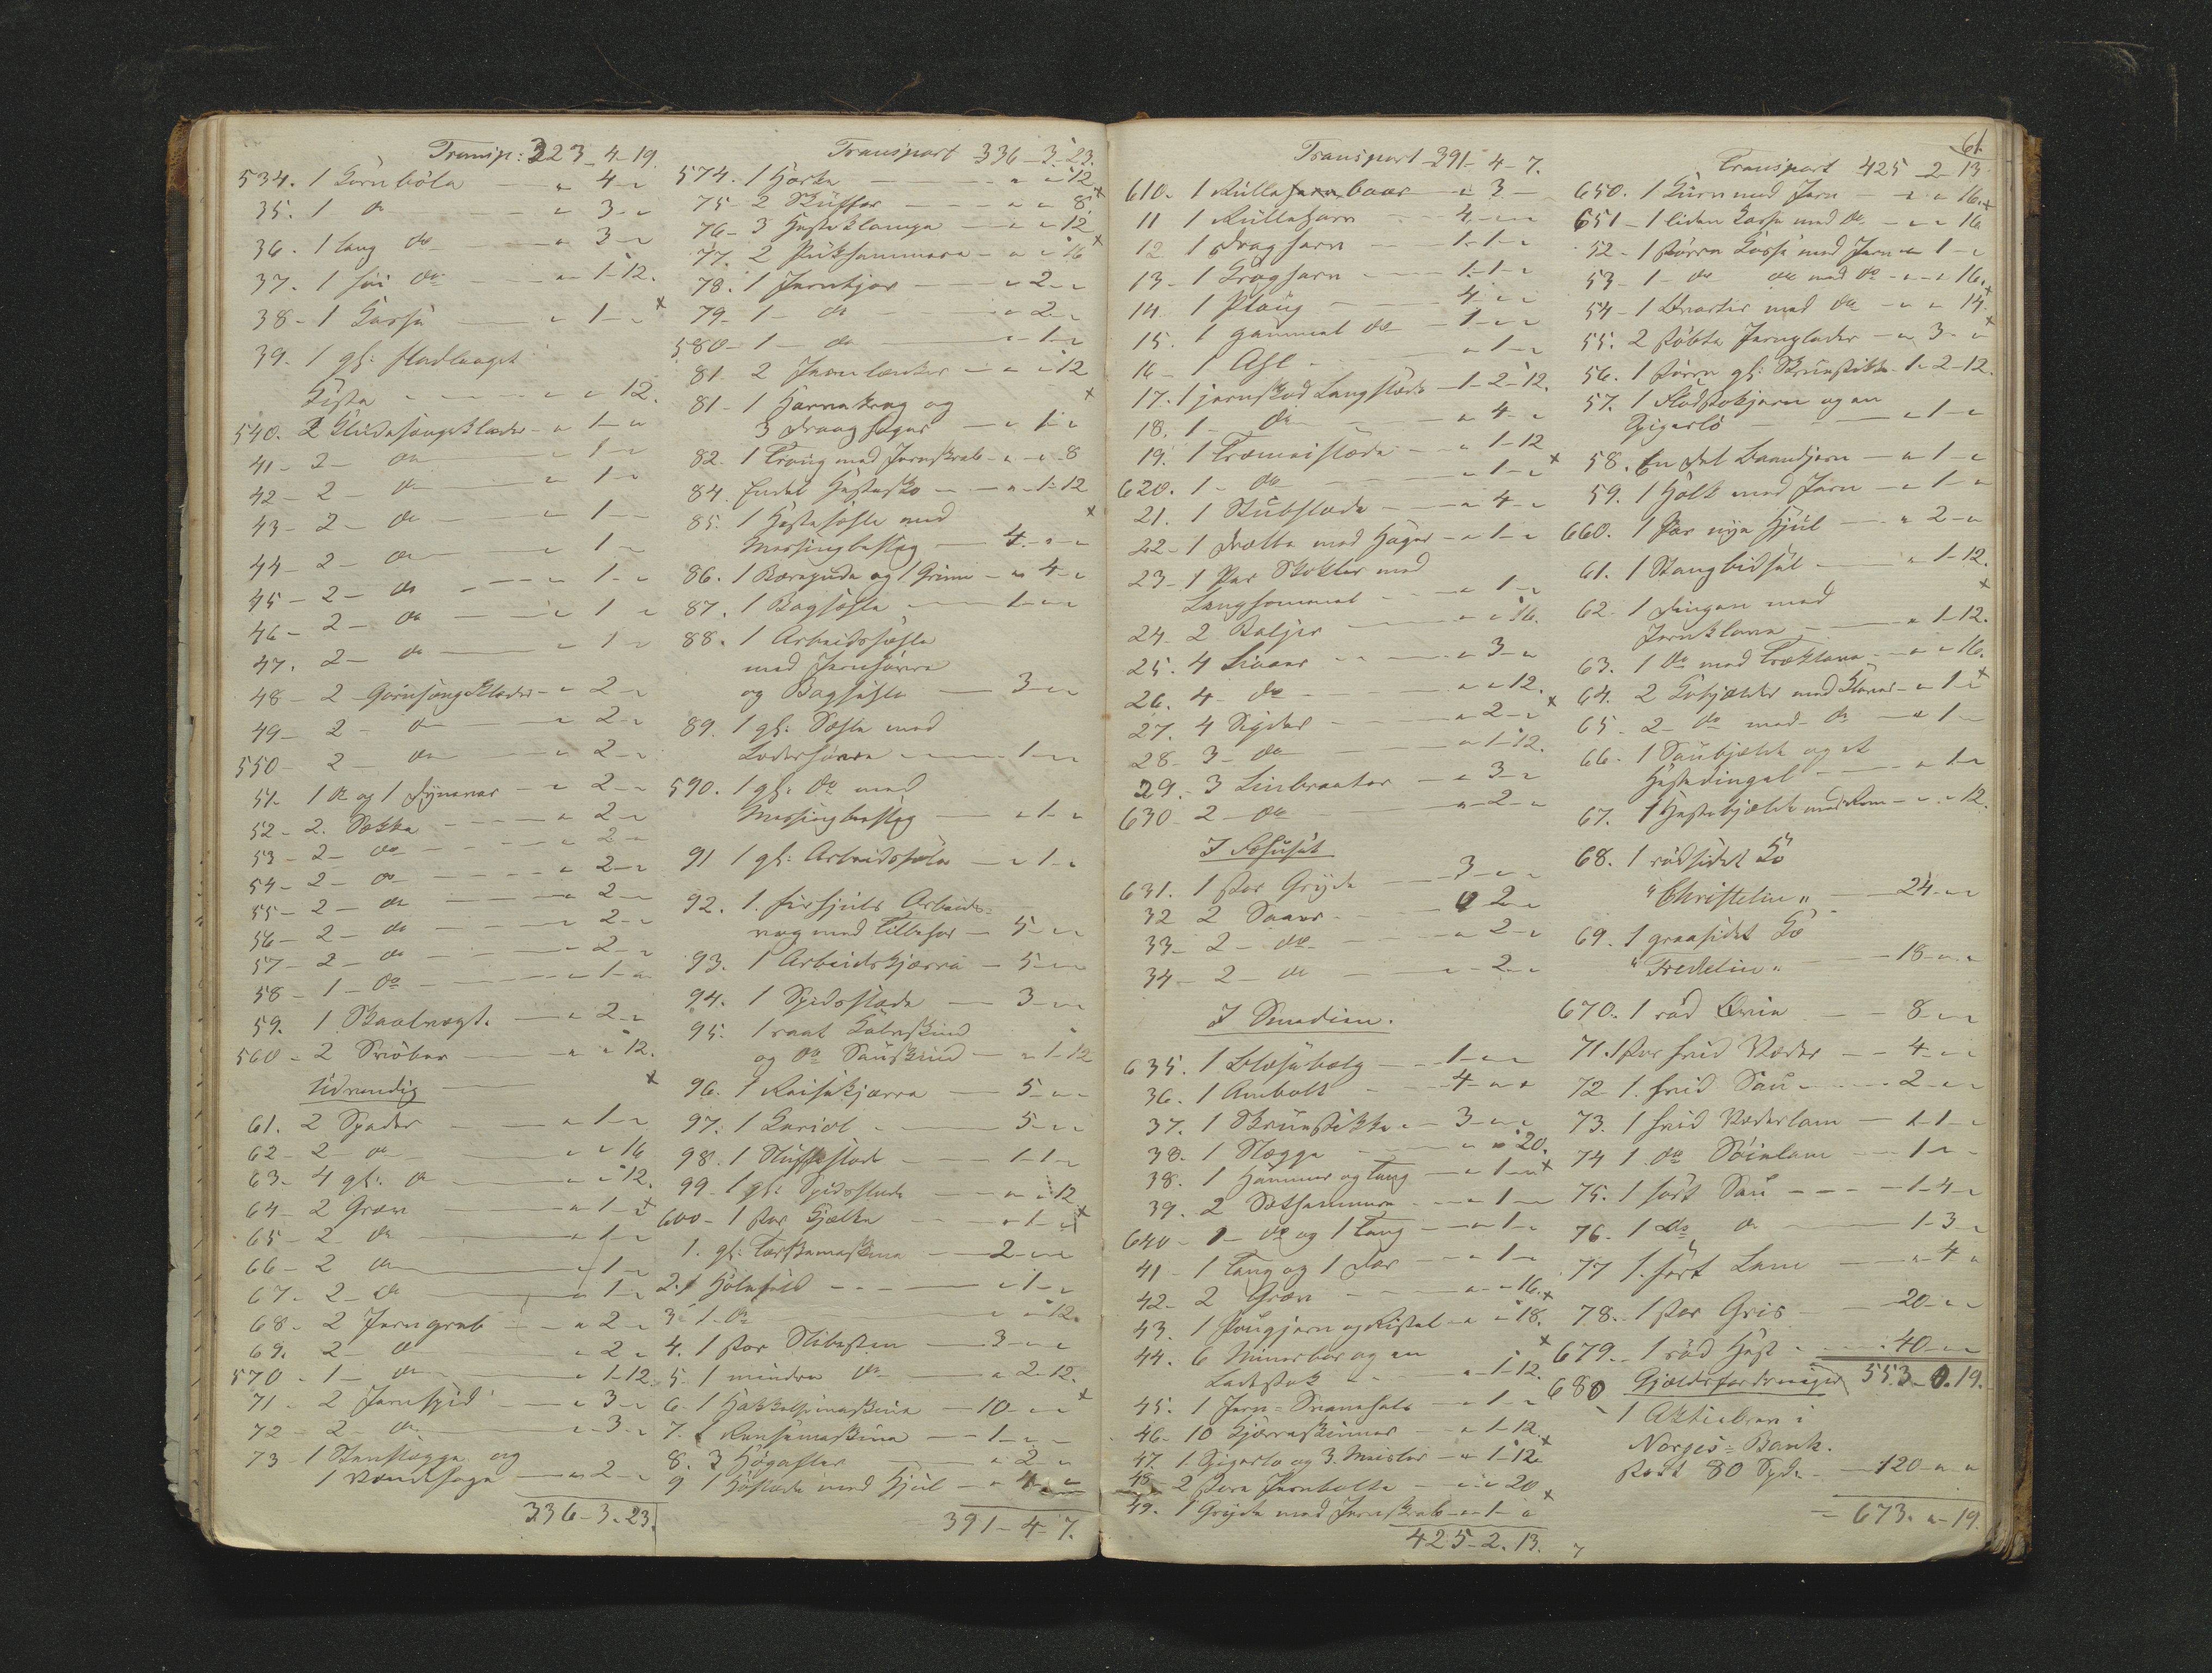 Transp: 323-4-19.
534. 1 Kornböle - " 4 - "
35. 1 do - " 3 - "
36. 1 lang do - " 3 - "
37. 1 do - " 1 - 12.
38 - 1 Kasse - " 1 - "
39. 1 gl: fladlaaget
Kiste - " " 12.
540. 2 Klæder - " 1 - "
41 - 2 - do - " 1 - "
42 - 2 - do - " 1 - "
43 - 2 - do - " 1 - "
44 - 2 - do - " 1 - "
45 - 2 - do - " 1 - "
46 - 2 - do - " 1 - "
47. 2 - do - " 1 - "
48 - 2 Klæder - " 2 - "
49 - 2 - do - " 2 - "
550 - 2 - do - " 2 - "
51. 1 do og 1 Dynevar - " 2 - "
52 - 2. Sække - " 2 - "
53 - 2 - do - " 2 -
54 - 2 - do - " 2 - "
55 - 2 - do - " 2 -
56 - 2 - do - " 2 - "
57 - 2 - do - " 2 - "
58 - 1 - do - " 1 - "
59. 1 Skaalvægt. - " 2 - "
560 - 2 - " " 12.
Udvendig
61. 2 Spader - " 1 - "
62 - 2 - do - " " 16
63 - 4 gl: do - " " 12.
64 - 2 Grev - " 1 - "
65 - 2 do - " 1 - "
66 - 2 do - " 1 - "
67. 2 - do - " 1 - "
68 - 2 Jerngreb - " 2 - "
69. 2 - do - " 2 - "
570 - 1 - do - " 1 - 12
71 - 2 Jernspid - " 3 - "
72 - 2 - do - " 3 - "
73 - 1 Stenslægge og
1 Vændesage - " 2 - "
336-3-23.
Transport 336-3-23.
574. 1 Harke - " " 12
75 - 2 Skuffer - " " 8
76 - 3 Hesteklamper - " " 12
77. 2 Pukhammere - " " 16
78. 1 Jernkjør - " 2 - "
79 - 1 - do - " 2 - "
580 - 1 - do - " 1 - "
81. 2 Jernlænker - " " 12
81 - 1 og
3 - " 1 - "
82. 1 Traug med Jernskrab - " " 8
84. Endel Hestesko - " 1 - 12
85. 1 Hestesæhle med
Messingbeslag - 4 - " "
86. 1 Bærepude og 1 Grime - " 4 - "
87. 1 Bagsæhle - 1 - " "
88. 1 Arbeidssæhle
med
og Bagsæhle - 3 - " "
89. 1 gl: Sæhle med
- 1 - " "
590. 1 gl: do med
Messingbeslag - " 1 - "
91 1 gl: Arbeidssæle - " 1 - "
92. 1. firhjuls Arbeids-
vog med Tilbehør - 5 - " "
93. 1 Arbeidskjærre - 5 - " "
94. 1 Spidsslæde - 3 - " "
95. 1 raat Kalveskind
og do Sauskind - " 1 - 12
96. 1 Reisekjærre - 5 - " "
97. 1 Kariol - 5 - " "
98. 1 - 1 - 1 - "
99 - 1 gl: Spidsslæde - " " 12
600 - 1 stor Kjælke - " 1 - "
1. gl: Tærskemaskine - 2 - " "
2. 1 - " 1 - "
3 - 1 - do - " " 12.
4. 1 stor Slibesten - 3 - " "
5. 1 mindre do - " 2 - 12.
6 - 1 Hakkelsemaskine - 10 - " "
7. 1 Rensemaskine - 1 - " -
8. 3 Høgafler - " 2 - "
9 1 Høslæde med Hjul - " 4 - "
391-4-7.
Transport 391-4-7.
610. 1 Rullebaar - " 3 -
11 1 Rulleharv - 4 - " "
12 1 Dragharv - 1 - 1 - "
13 - 1 Krogharv - 1 - 1 - "
14. 1 Ploug - 4 - " "
15. 1 gammel do - 1 - " "
16 - 1 - " 1 - "
17. 1 jernskoed Langslæde - 1 - 2 - 12.
18. 1 - do - " 4 - "
19. 1 Træmeislæde - " 1 - 12
620. 1 - do - " 1 - "
21. 1 Stubslæde - " 4 - "
22 - 1 med Hager - " 1 - "
23 - 1 Par Skokler med
Langhammel - " 1 - "
24 - 2 Baljer - " " 16.
25. 4 Liaaer - " 3 - "
26. 4 - do - " " 12.
27. 4 Sigder - " 2 - "
28 - 3 - do - " 1 - 12.
29. - 3 Linbraater - " 3 - "
630 - 2 - do - " 2 - "
I Ildhuset
631. 1 stor Gryde - 3 - " "
32 2 Saaer - 2 - "
33 - 2 - do - " 2 - "
34 - 2 - do - " 2 - "
I Smedien.
635. 1 Blæsebælg - 1 - " "
36. 1 Ambolt - 4 - " "
37. 1 Skruestikke - 3 - " "
38. 1 Slægge - " " 20.
38. 1 Hammer og Tang - " 1 - "
39. 2 Sæthammere - " 1 -
640 - 1 - do og 1 Tang - " 1 - "
41 - 1 Tang og 1 Dor - " 1 -
42 - 2 Grev - " " 16.
43. 1 Plougjern og Ristel - " " 18.
44. 6 Minerbor og en
Ladestok - " 1 - 12.
45. 1 Jern-Svanehals - " 1 - "
46 - 10 Kjærreskinner - " 1 - 12.
47. 1 og 3 Meisler - " 1 - 12
48 - 2 store Jernbolte - " " 20
49. 1 Gryde med Jernskrab - " 1 - "
425-2. 13.
61.
Transport 425-2-13.
650. 1 Kurv med Jern - " " 16.
651 - 1 liden Kasse med do - " " 16
52 - 1 større Kasse med Jern - " 1 - "
53 - 1 - do do med do - " " 16.
54 - 1 Kvarter med do - " " 14.
55. 2 støbte Jernplader - " 3 - "
56. 1 større gl: Skruestikke - 1 - 2 - 12.
57. 1 og en
- " 1 - "
58. En Del Baandjern - " 1 - "
59. 1 Holk med Jern - " 1 - "
660. 1 Par nye Hjul - " 2 - "
61. 1 Stangbidsel - " 1 - 12.
62 - 1 med
Jernklave - " 1 - 12.
63. 1 do med Træklave - " " 16.
64. 2 Kobjælder med Klaver - " 1 - "
65 - 2 - do med do - " 1 -
66. 1 Saubjælde og et
- " 1 - "
67. 1 Hestebjælde med Rem - " " 12.
68. 1 rødsidet Ko
"Christelin" - 24 - " "
69. 1 graasidet Ko
"Fredelin" - 18 - " "
670. 1 rød Kvie - 8 - " "
71. 1 stor hvid Væder - 4 - " "
72 1. hvid Sau - 2 - " "
73. 1 hvid Væderlam - 1 - 1 - "
74 1 do Søielam - 1 - " -
75. 1 sort Sau - 1 - 4 - "
76. 1 do do - 1 - 3 - "
77 1 sort Lam - " 4 "
78. 1 stor Gris - 20 - " "
679. 1 rød Hest - 40 - " "
680 Gjældsfordringer 553-0.19.
1 Aktiebrev i
Norges-Bank.
stort 80 Spd. - 120 - " "
= 673. " - 19.